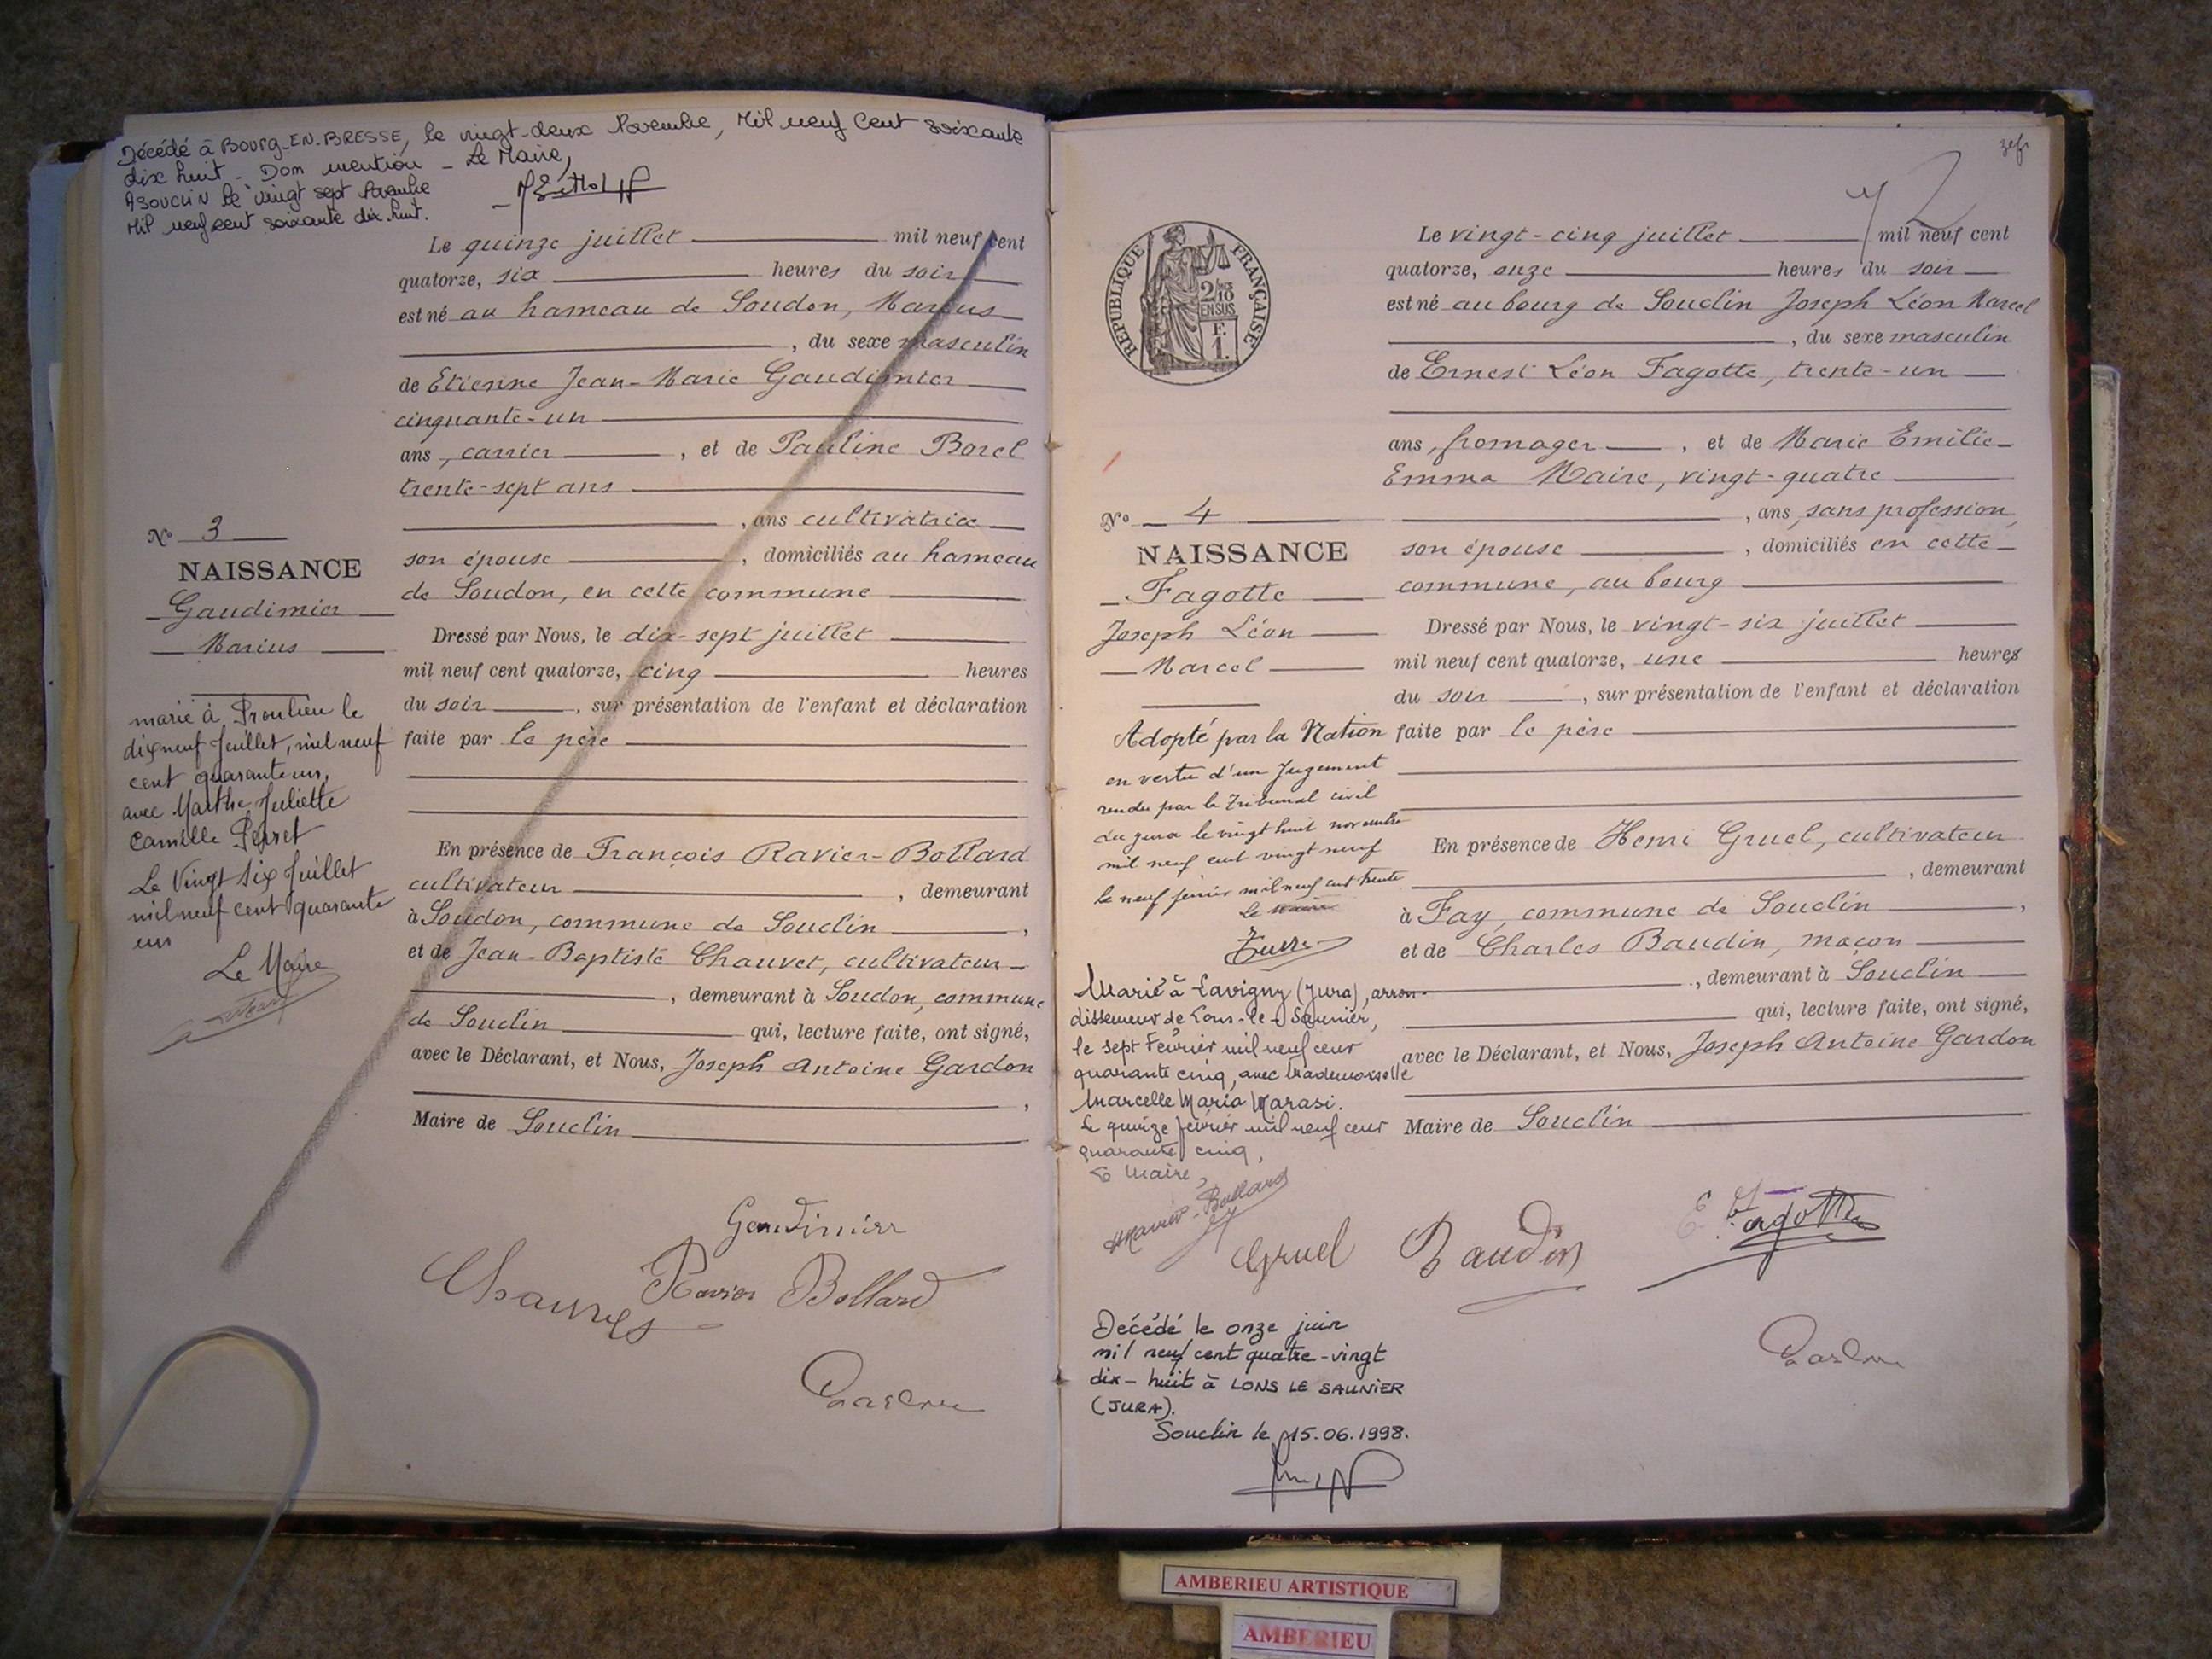 Décédé à BOURG-EN-BRESSE, le vingt-deux Novembre, Mil neuf Cent soixante
dix huit - Dom mention - Le Maire,
A SOUCLIN le vingt sept Novembre
Mil neuf cent soixante dix-huit.
Le quinze juillet mil neuf cent
quatorze, six heures du soir
est né au hameau de Soudon, Marius
, du sexe masculin
de Etienne Jean-Marie Gaudimier
cinquante-un
ans, carrier, et de Pauline Borel
trente-sept ans
, ans cultivatrice
son épouse, domiciliés au hameau
de Soudon, en cette commune
Dressé par Nous, le dix-sept juillet
mil neuf cent quatorze, cinq heures
du soir, sur présentation de l'enfant et déclaration
faite par le père
En présence de François Ravier-Bollard
cultivateur, demeurant
à Soudon, commune de Souclin,
et de Jean-Baptiste Chauvet, cultivateur
, demeurant à Soudon, commune
de Souclin qui, lecture faite, ont signé,
avec le Déclarant, et Nous, Joseph Antoine Gardon
,
Maire de Souclin
N° 3
NAISSANCE
Gaudimier
Marius
marié à Proulieu le
dix neuf Juillet, mil neuf
cent quarante un,
avec Marthe Juliette
Camille Perret
Le Vingt Six Juillet
mil neuf cent quarante
un
Le Maire
Gaudimier
Chauvet Ravier Bollard
Gardon
3ef
72
REPUBLIQUE FRANÇAISE
2/10
EN SUS
F.
1.
Le vingt-cinq juillet mil neuf cent
quatorze, onze heures du soir
est né au bourg de Souclin Joseph Léon Marcel
, du sexe masculin
de Ernest Léon Fagotte, trente-un
ans, fromager, et de Marie Emilie
Emma Maire, vingt-quatre
, ans, sans profession,
son épouse, domiciliés en cette
commune, au bourg
Dressé par Nous, le vingt-six juillet
mil neuf cent quatorze, une heures
du soir, sur présentation de l'enfant et déclaration
faite par le père
En présence de Henri Gruel, cultivateur
, demeurant
à Fay, commune de Souclin,
et de Charles Baudin, maçon
, demeurant à Souclin
qui, lecture faite, ont signé,
avec le Déclarant, et Nous, Joseph Antoine Gardon
Maire de Souclin
N° 4
NAISSANCE
Fagotte
Joseph Léon
Marcel
Adopté par la Nation
en vertu d'un Jugement
rendu par le Tribunal civil
du Jura le vingt huit novembre
mil neuf cent vingt neuf
le neuf février mil neuf cent trente
Le Maire
Marié à Lavigny (Jura), arron-
dissement de Lons-le-Saunier,
le sept Février mil neuf cent
quarante cinq, avec Mademoiselle
Marcelle Maria Marasi.
Le quinze février mil neuf cent
quarante cinq,
Le Maire,
Ravier-Bollard
Gruel Baudin E. Fagotte
Gardon
Décédé le onze juin
mil neuf cent quatre-vingt
dix-huit à LONS LE SAUNIER
(JURA).
Souclin le 15.06.1998.
AMBERIEU ARTISTIQUE
AMBERIEU